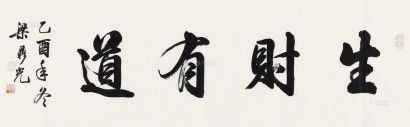 生財有道
乙酉年冬
梁剑光